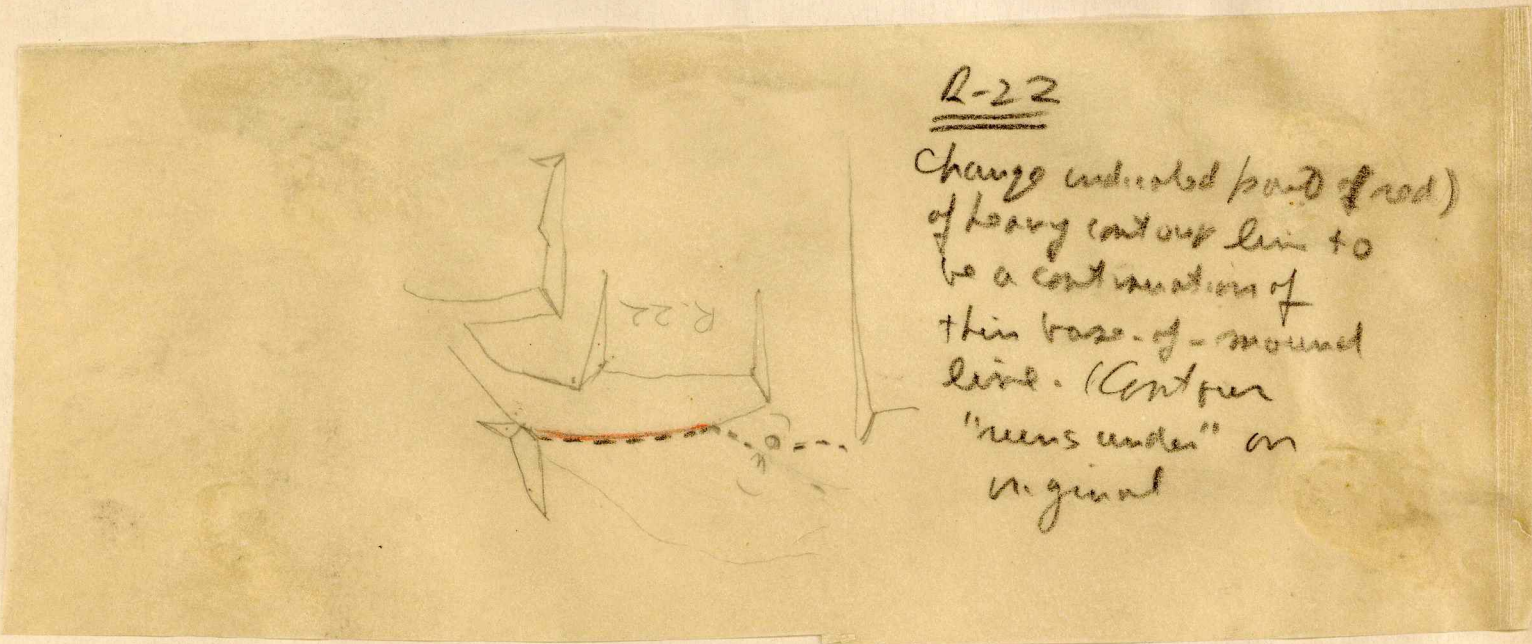 R-22
Change indicated part of red)
of heavy contour line to
be a continuation of
thin base-of-mound
line. (Contour
"runs under" on
original
R.22